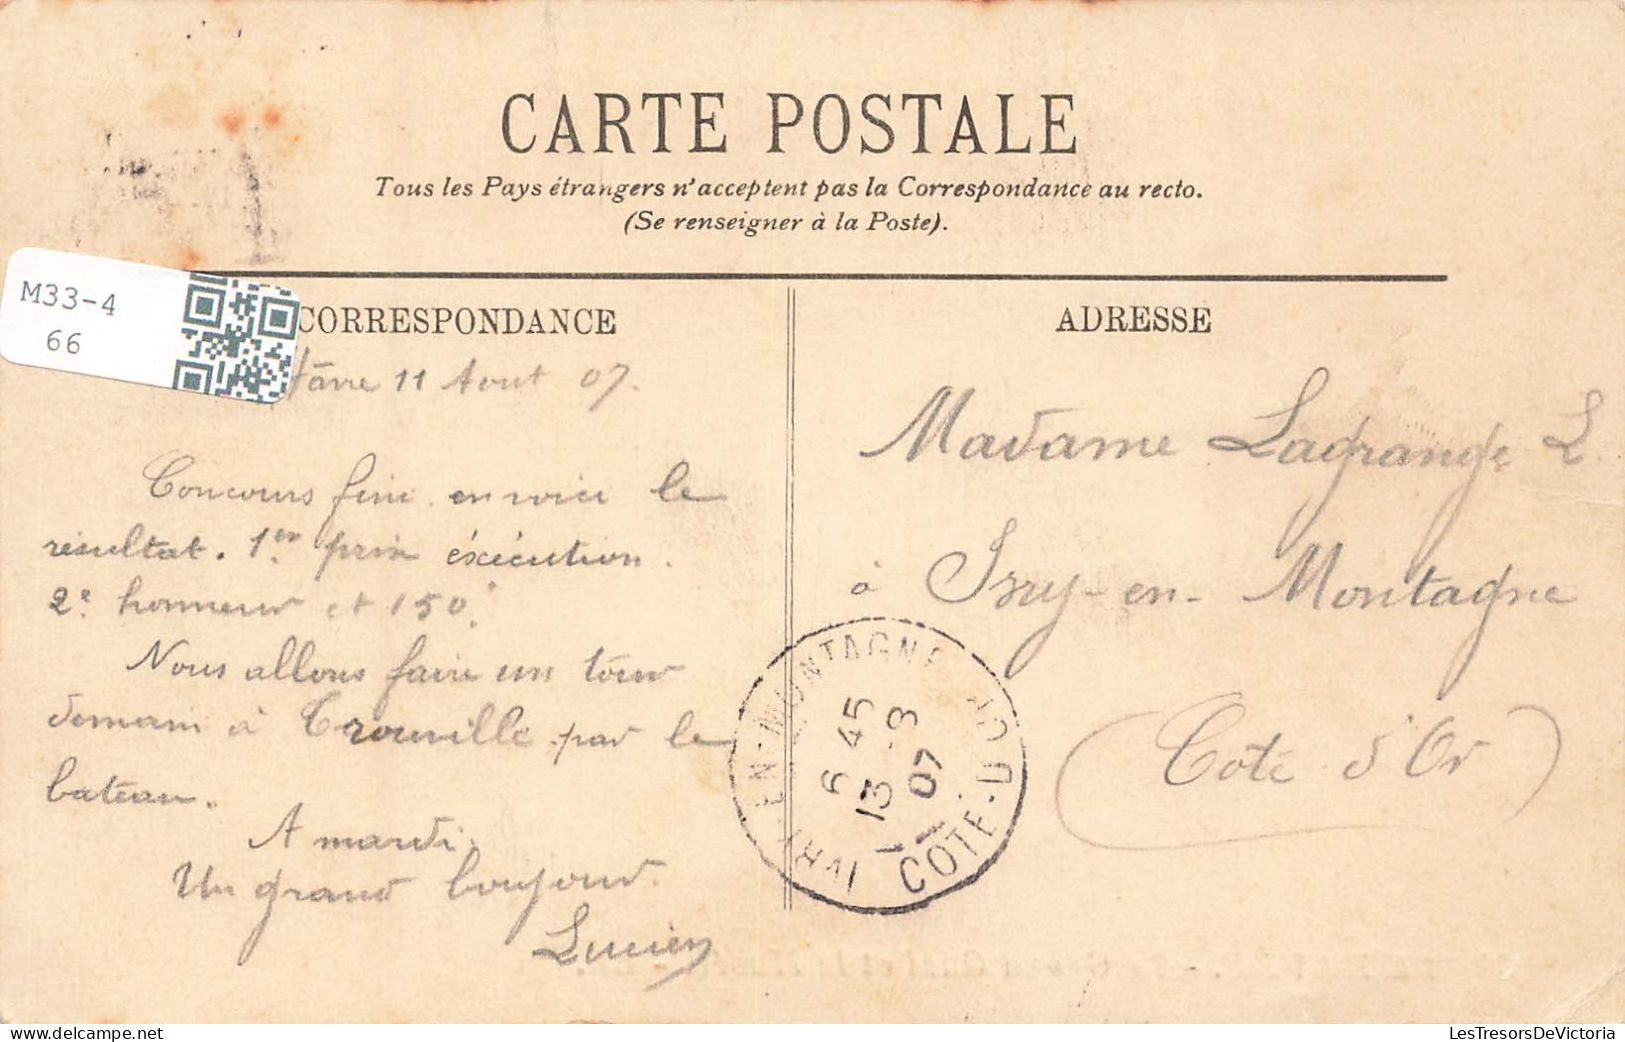 CARTE POSTALE
Tous les Pays étrangers n'acceptent pas la Correspondance au recto.
(Se renseigner à la Poste).
M33-4
66
CORRESPONDANCE
Hâvre 11 Aout 07.
Concours fini en voici le
résultat. 1er prix éxécution.
2e honneur et 150f
Nous allons faire un tour
demain à Trouville par le
bateau.
A mardi.
Un grand boujour.
Lucien
ADRESSE
Madame Lagrange L.
à Ivry-en-Montagne
(Cote d'Or)
IVRY-EN-MONTAGNE
6 45
13 -8
07
COTE-D'OR
LesTresorsDeVictoria
https://www.delcampe.net